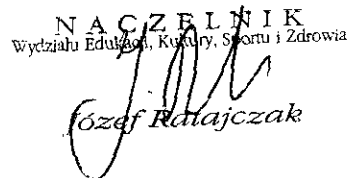 NACZELNIK
Wydziału Edukacji, Kultury, Sportu i Zdrowia
Józef Ratajczak